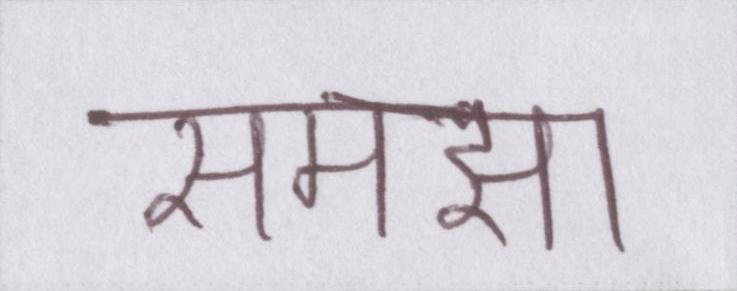 समझा